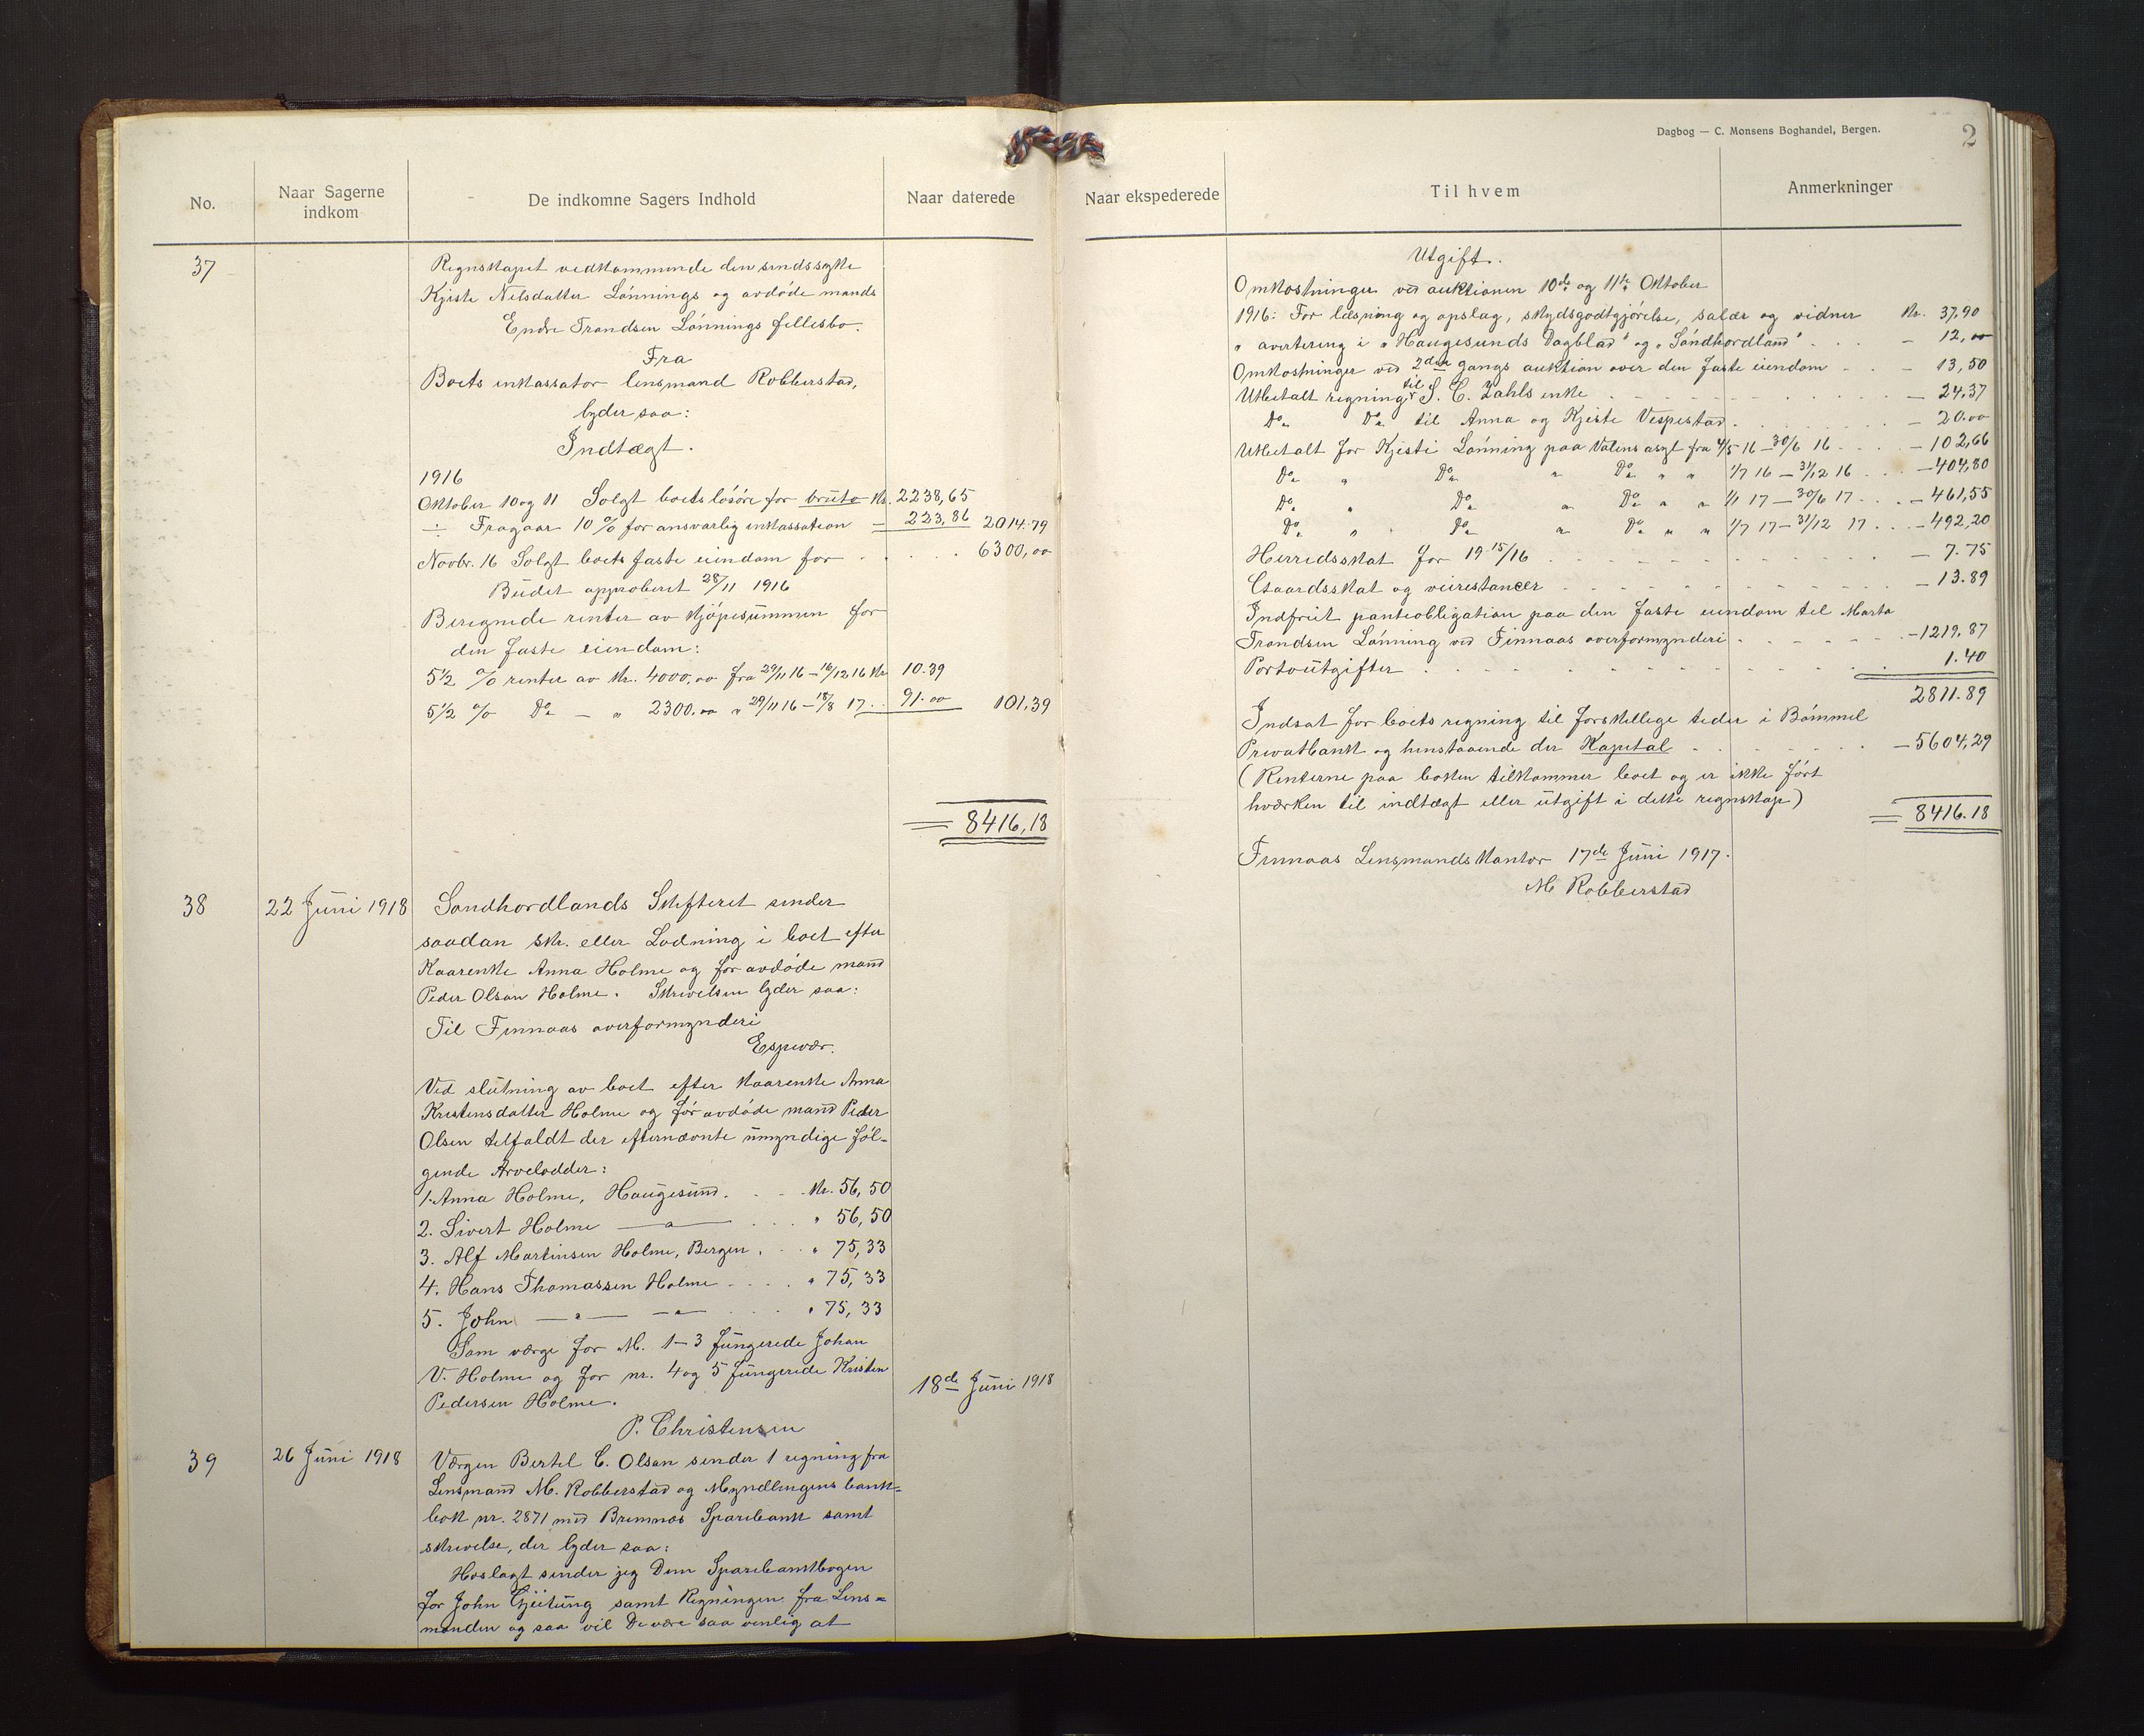 Dagbog — C. Monsens Boghandel, Bergen.
2
No.
Naar Sagerne indkom
De indkomne Sagers Indhold
Naar daterede
Naar ekspederede
Til hvem
Anmerkninger
37
Regnskapet vedkommende den sindssyke
Kjiste Nilsdatter Lønnings og avdøde mands
Endre Trondsen Lønnings fellesbo.
Fra
Boets inkassator lensmand Robberstad,
lyder saa:
Indtægt.
1916
Oktober 10 og 11 Solgt boets løsøre for bruto Kr. 2238,65
÷ Fragaar 10 % for ansvarlig inkassation — 223,86 2014.79
Novbr. 16 Solgt boets faste eiendom for . . . . 6300,00
Budet approberet 28/11 1916
Beregnede renter av kjøpesummen for
den faste eiendom:
5½ % renter av kr. 4000,00 fra 29/11 16 – 16/12 16 Kr 10.39
5½ % Do — " 2300.00 " 29/11 16 – 18/8 17 . . 91.00 101,39
= 8416,18
38
22 Juni 1918
Søndhordlands Skifteret sender
saadan skr. eller Lodning i boet efter
Kaarenke Anna Holme og før avdøde mand
Peder Olson Holme. Skrivelsen lyder saa:
Til Finnaas overformynderi
Espevær.
Ved slutning av boet efter Kaarenke Anna
Kristensdatter Holme og før avdøde mand Peder
Olsen tilfaldt der efternævnte umyndige føl-
gende Arvelodder:
1. Anna Holme, Haugesund. . . Kr. 56,50
2. Sivert Holme —"— . . . " 56,50
3. Alf Martinsen Holme, Bergen . . . " 75,33
4. Hans Thomassen Holme . . . . " 75,33
5. John —"— —"— . . . " 75,33
Som værge for No. 1–3 fungerede Johan
V. Holme og for nr. 4 og 5 fungerede Kristen
Pedersen Holme.
18de Juni 1918
P. Christensen
39
26 Juni 1918
Værgen Bertel C. Olson sender 1 regning fra
Lensmand M. Robberstad og Myndlingens bank-
bok nr. 2871 med Bremnæs Sparebank samt
skrivelse, der lyder saa:
Hoslagt sender jeg Dem Sparebankbogen
for John Gjeitung samt Regningen fra Lens=
manden og saa vil De være saa venlig at
Utgift.
Omkostninger ved auktionen 10de og 11te Oktober
1916: For læsning og opslag, skydsgodtgjørelse, salær og vidner Kr. 37,90
" avertering i "Haugesunds Dagblad" og "Søndhordland" . . . — 12,00
Omkostninger ved 2den gangs auktion over den faste eiendom . . — 13,50
Utbetalt regning til S. C. Zahls enke . . . — 24,37
Do Do til Anna og Kjiste Vespestad . . . — 20.00
Utbetalt for Kjesti Lønning paa Valens asyl fra 4/5 16 – 30/6 16 . . . — 102,66
Do " Do " Do " " 1/7 16 – 31/12 16 . . — 404,80
Do " Do " Do " " 1/1 17 – 30/6 17 . . . — 461,55
Do " Do " Do " " 1/7 17 – 31/12 17 . . . — 492,20
Herredsskat for 19 15/16 . . . — 7.75
Gaardsskat og veirestancer . . . — 13.89
Indfriet panteobligation paa den faste eiendom til Marta
Trondsen Lønning ved Finnaas overformynderi . . . — 1219.87
Portoutgifter . . . 1.40
2811.89
Indsat for boets regning til forskellige tider i Bømmel
Privatbank og henstaaende der Kapital . . . — 5604,29
(Renterne paa boken tilkommer boet og er ikke ført
hverken til indtægt eller utgift i dette regnskap)
= 8416.18
Finnaas Lensmandskontor 17de Juni 1917.
M Robberstad